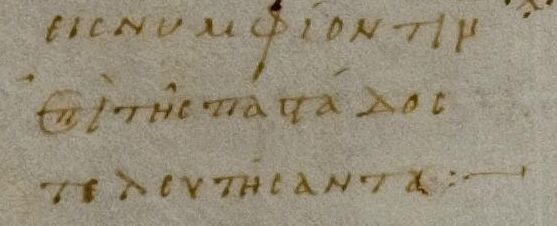 εις νυμφίον τιν
ἐπὶ τῆς παϛάδος
τελευτήσαντα :—